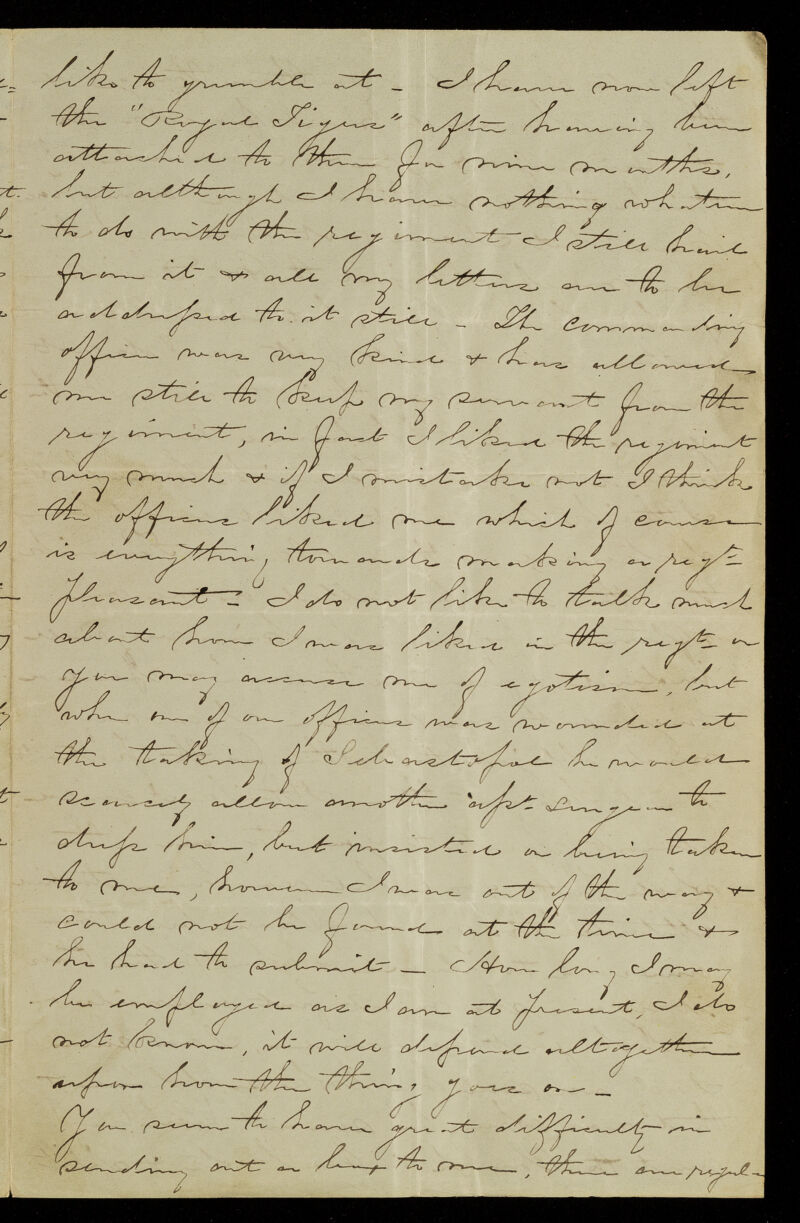 like to grumble at – I have now left
the "Royal Tigers" after having been
attached to them for nine months,
but although I have nothing whatever
to do with the regiment I still hail
from it & all my letters are to be
addressed to it still – The commanding
officer was very kind & has allowed
me still to keep my servant from the
regiment, in fact I liked the regiment
very much & if I mistake not I think
the officers liked me which of course
is everything towards making a regt–
pleasant – I do not like to talk much
about how I was liked in the regt– or
you may accuse me of egotism, but
when one of our officers was wounded at
the taking of Sebastopol he would
scarcely allow another asst– Surgeon to
dress him, but insisted on being taken
to me, however I was out of the way &
could not be found at the time &
he had to submit – How long I may
be employed as I am at present, I do
not know, it will depend altogether
upon how the thing goes on –
You seem to have great difficulty in
sending out a box to me, there are regul–